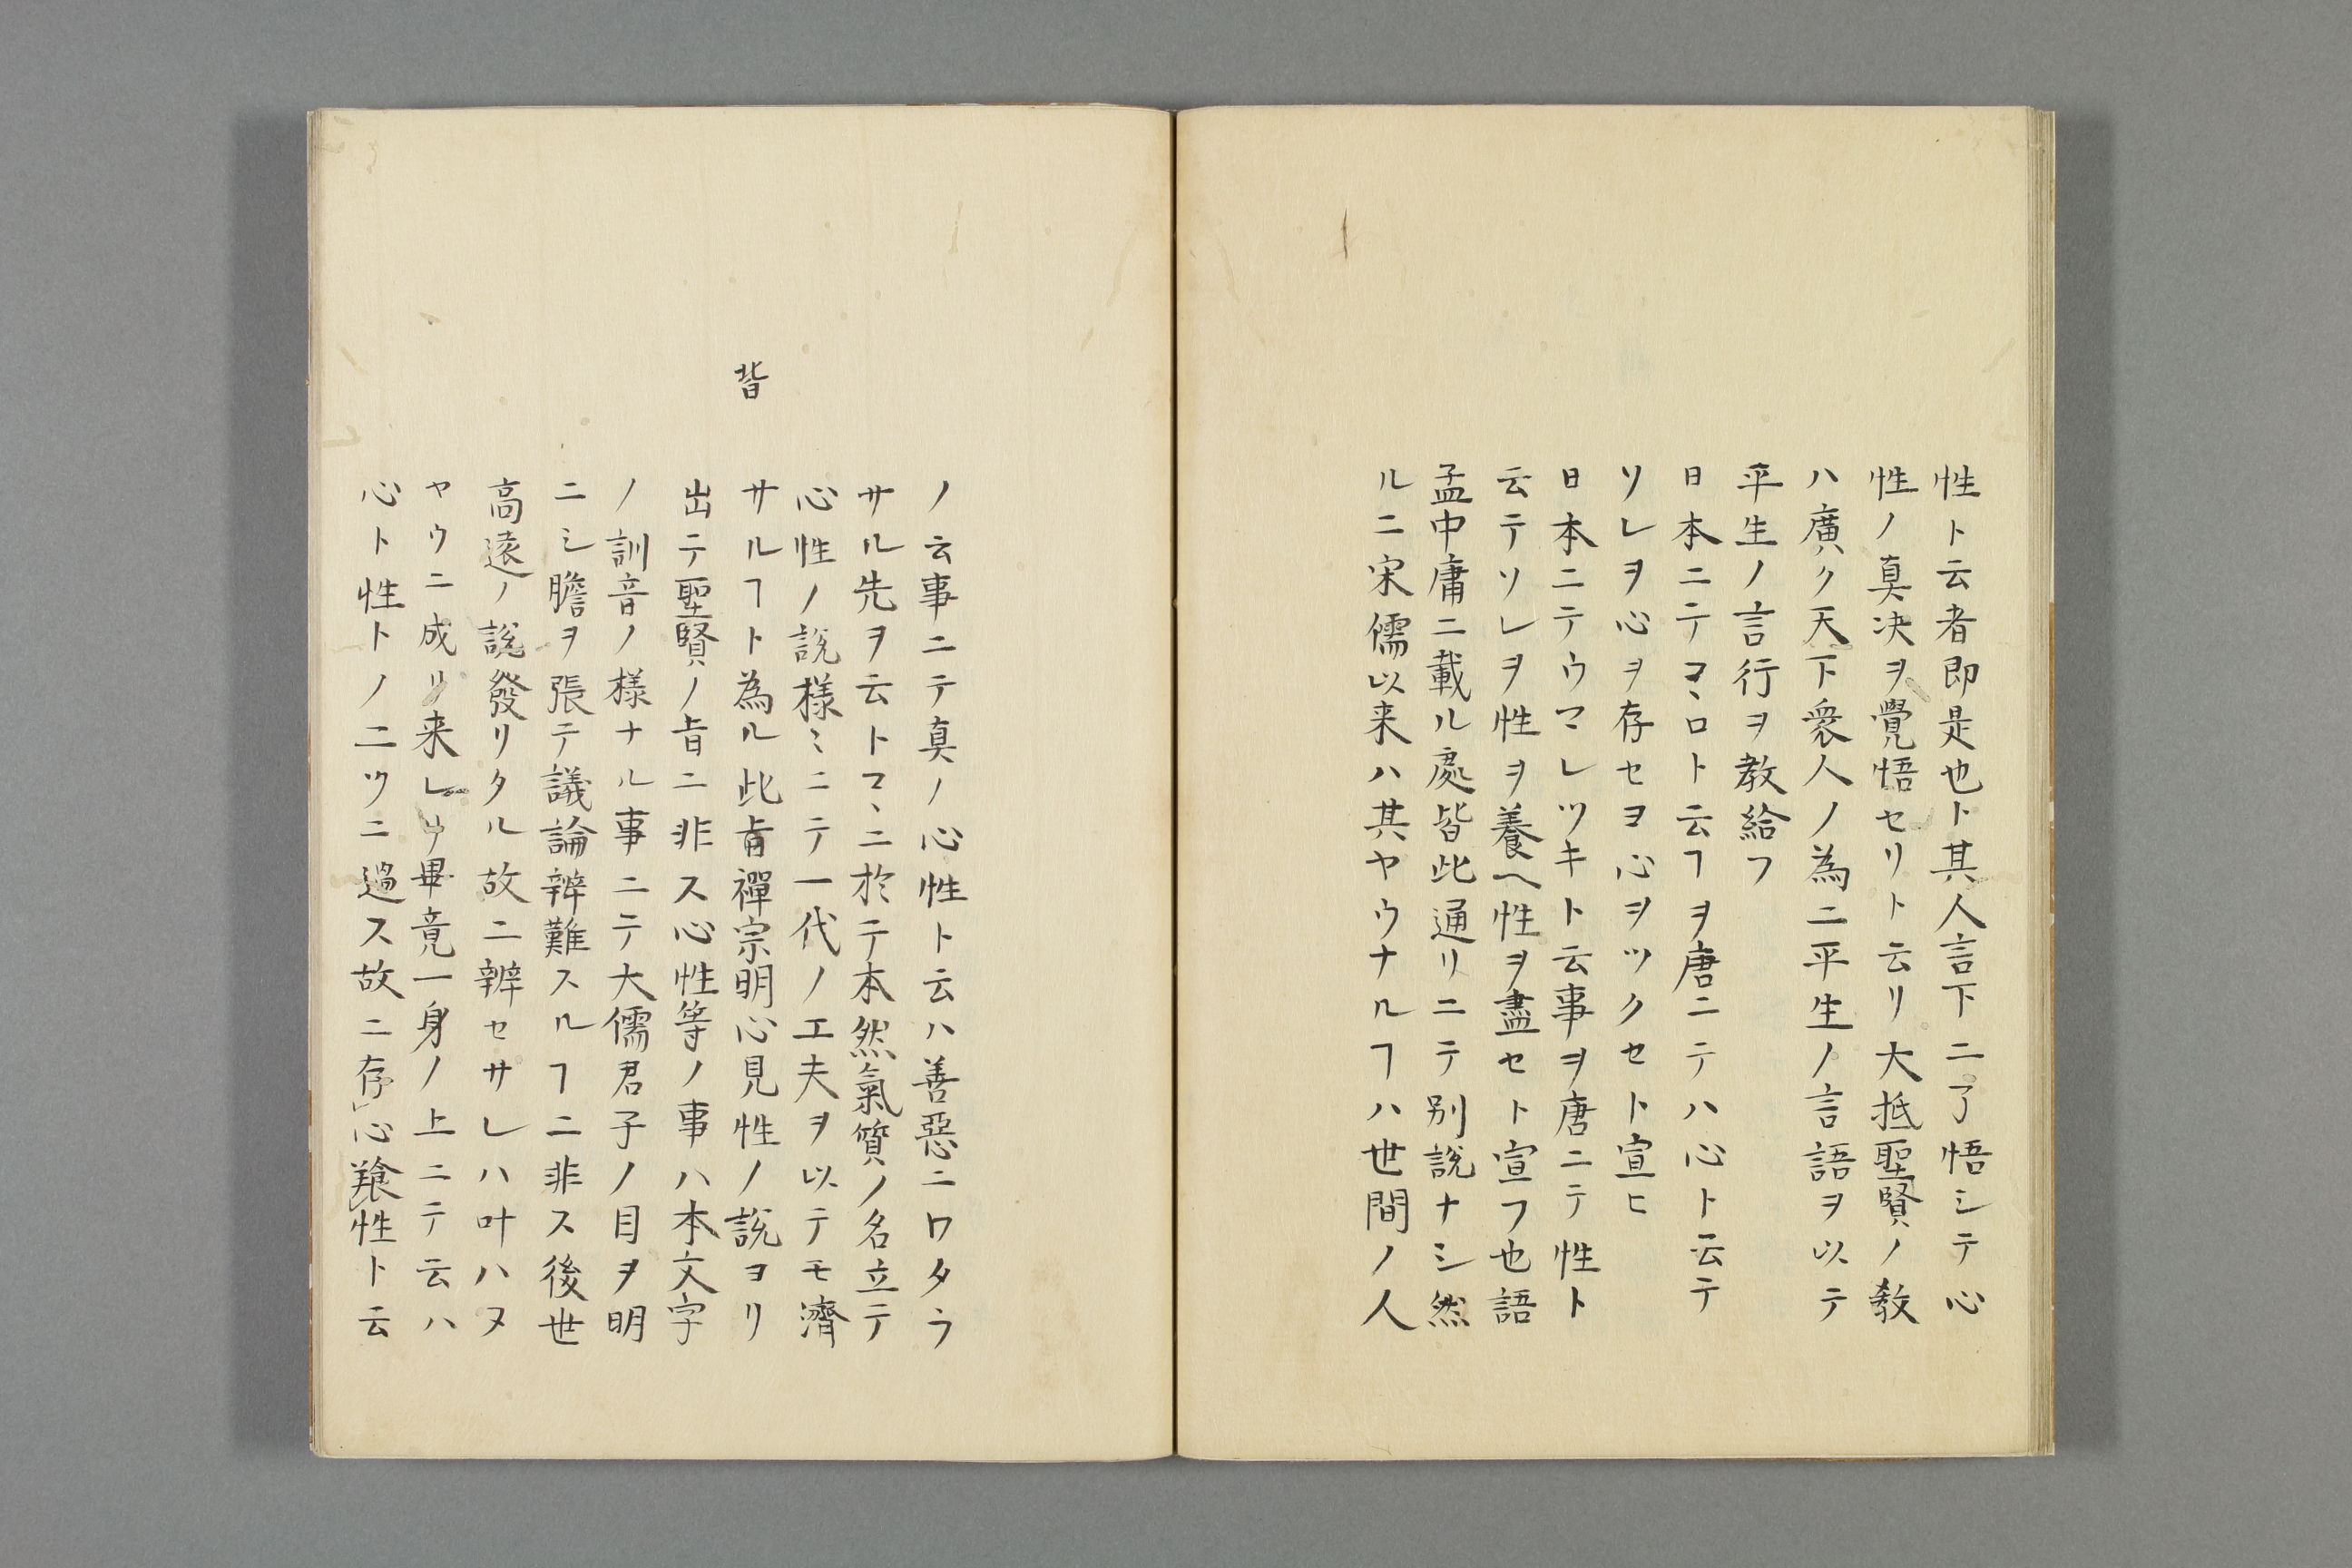 性ト云者即是也ト其人言下ニ了悟シテ心
性ノ真决ヲ覺悟セリト云リ大抵聖賢ノ教
ハ廣ク天下衆人ノ為ニ平生ノ言語ヲ以テ
平生ノ言行ヲ教給フ
日本ニテマヽロト云ヿヲ唐ニテハ心ト云テ
ソレヲ心ヲ存セヨ心ヲツクセト宣ヒ
日本ニテウマレツキト云事ヲ唐ニテ性ト
云テソレヲ性ヲ養ヘ性ヲ盡セト宣フ也語
孟中庸ニ載ル處皆此通リニテ別説ナシ然
ルニ宋儒以来ハ其ヤウナルヿハ世間ノ人
ノ云事ニテ真ノ心性ト云ハ善惡ニワタラ
サル先ヲ云トコヽニ於テ本然氣質ノ名立テ
心性ノ説様〻ニテ一代ノ工夫ヲ以テモ濟
サルヿト為ル此肯禪宗明心見性ノ説ヨリ
皆
出テ聖賢ノ旨ニ非ス心性等ノ事ハ本文字
ノ訓音ノ様ナル事ニテ大儒君子ノ目ヲ明
ニシ膽ヲ張テ議論辨難スルヿニ非ス後世
高遠ノ説發リタル故ニ辨セサレハ叶ハヌ
ヤウニ成リ来レリ畢竟一身ノ上ニテ云ハ
心ト性トノ二ツニ過ス故ニ存心養性ト云